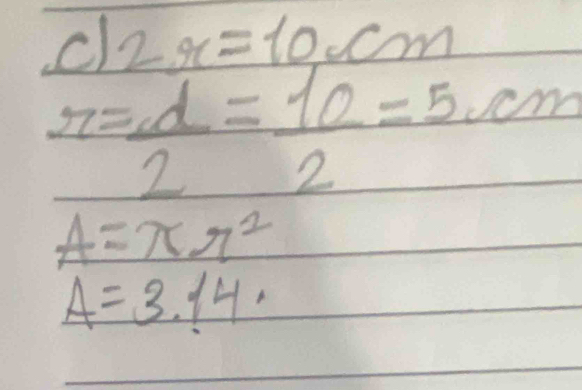 c) 2r = 10 cm
r = d/2 = 10/2 = 5 cm
A = πr²
A = 3.14 .